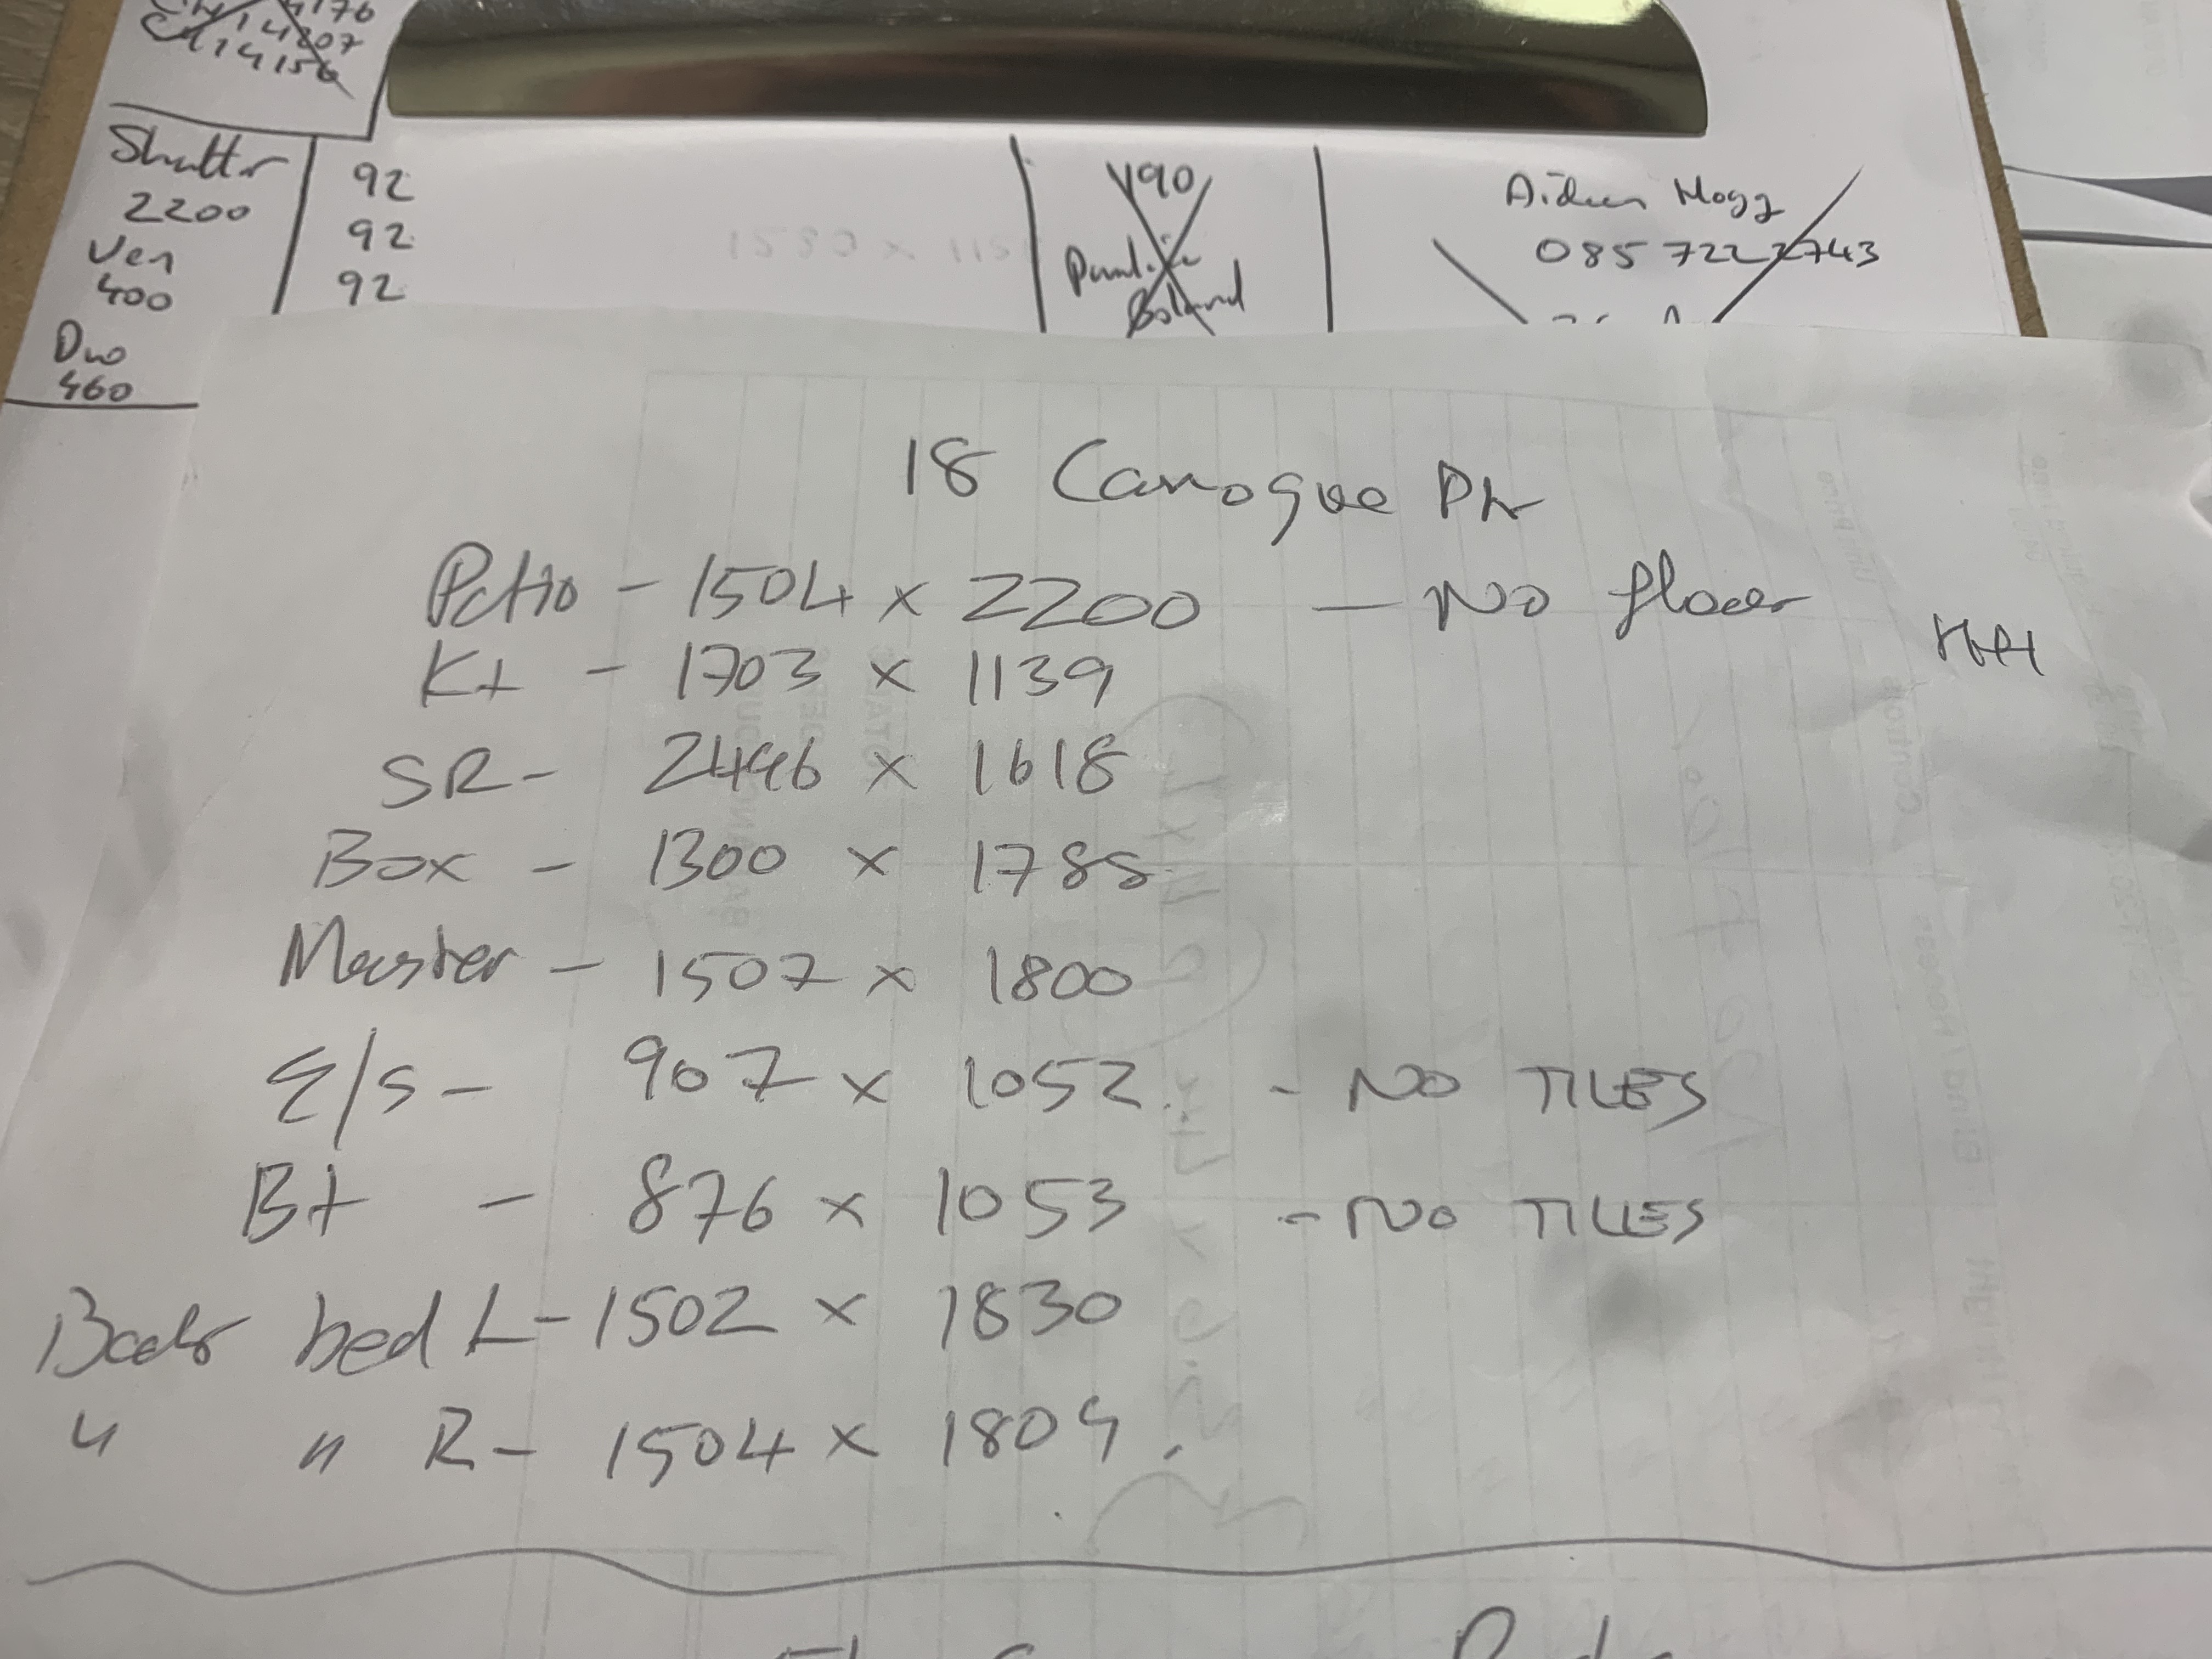 14207
14156
Shutter
2200
Ven
400
Duo
460
92
92
92
Y90
Boland
Aiden Hogg
085 722 2743
18 Canogue Pk
Patio - 1504 x 2200 - No floor
Kt - 1703 x 1139
SR - 2496 x 1618
Box - 1300 x 1788
Master - 1507 x 1800
E/S - 907 x 1052 - NO TILES
Bt - 876 x 1053 - NO TILES
Back bed L - 1502 x 1830
" " R - 1504 x 1809.